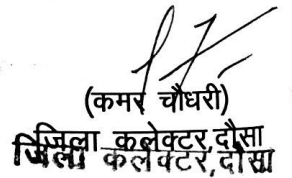 (कमर चौधरी)
जिला कलेक्टर,दौसा
जिला कलेक्टर,दौसा